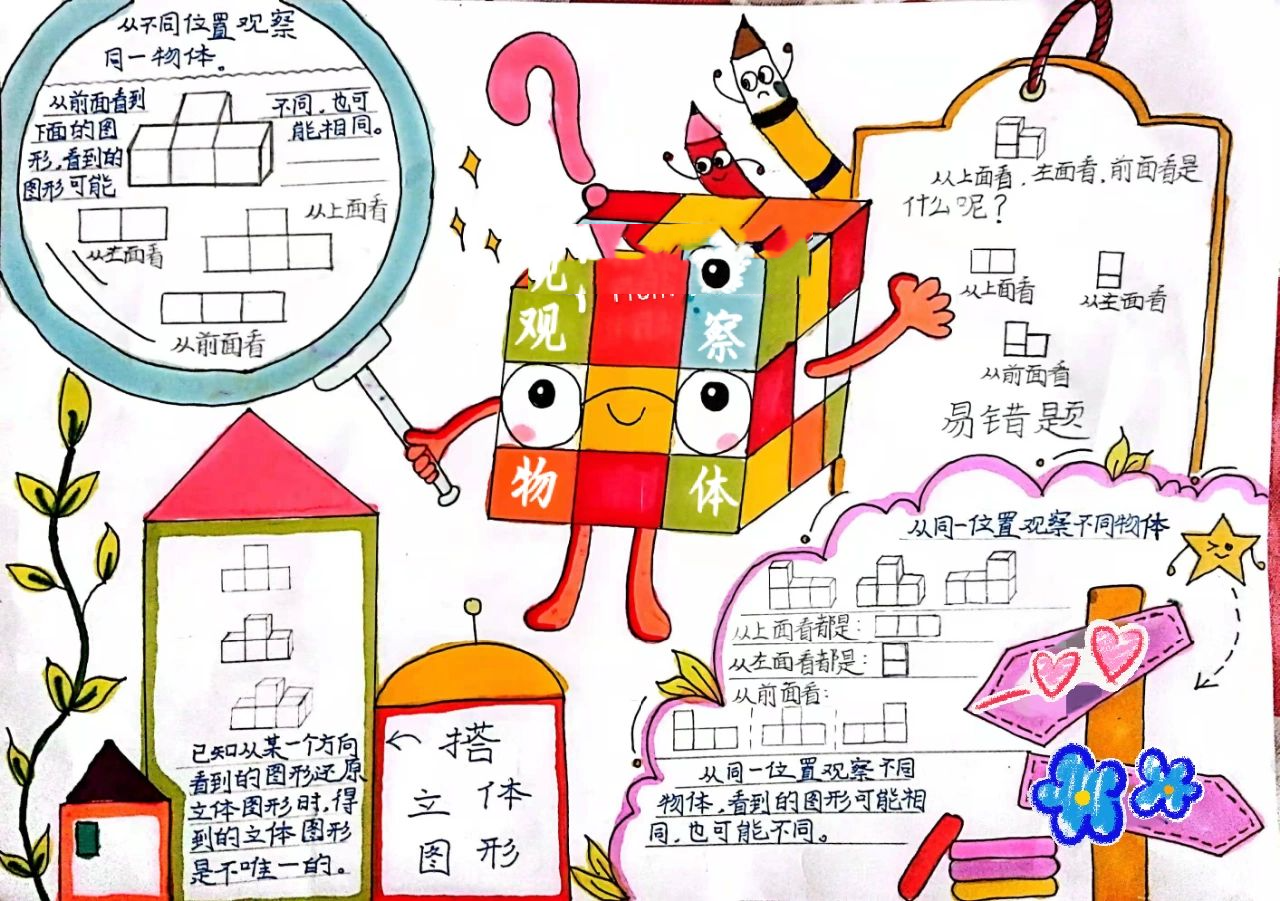 从不同位置观察
同一物体。
从前面看到
下面的图
形，看到的
图形可能
不同，也可
能相同。
从左面看
从上面看
从前面看
观
察
物
体
从上面看，左面看，前面看是
什么呢？
从上面看
从左面看
从前面看
易错题
已知从某一个方向
看到的图形还原
立体图形时，得
到的立体图形
是不唯一的。
搭
立体
图形
从同一位置观察不同物体
从上面看都是：
从左面看都是：
从前面看：
从同一位置观察不同
物体，看到的图形可能相
同，也可能不同。